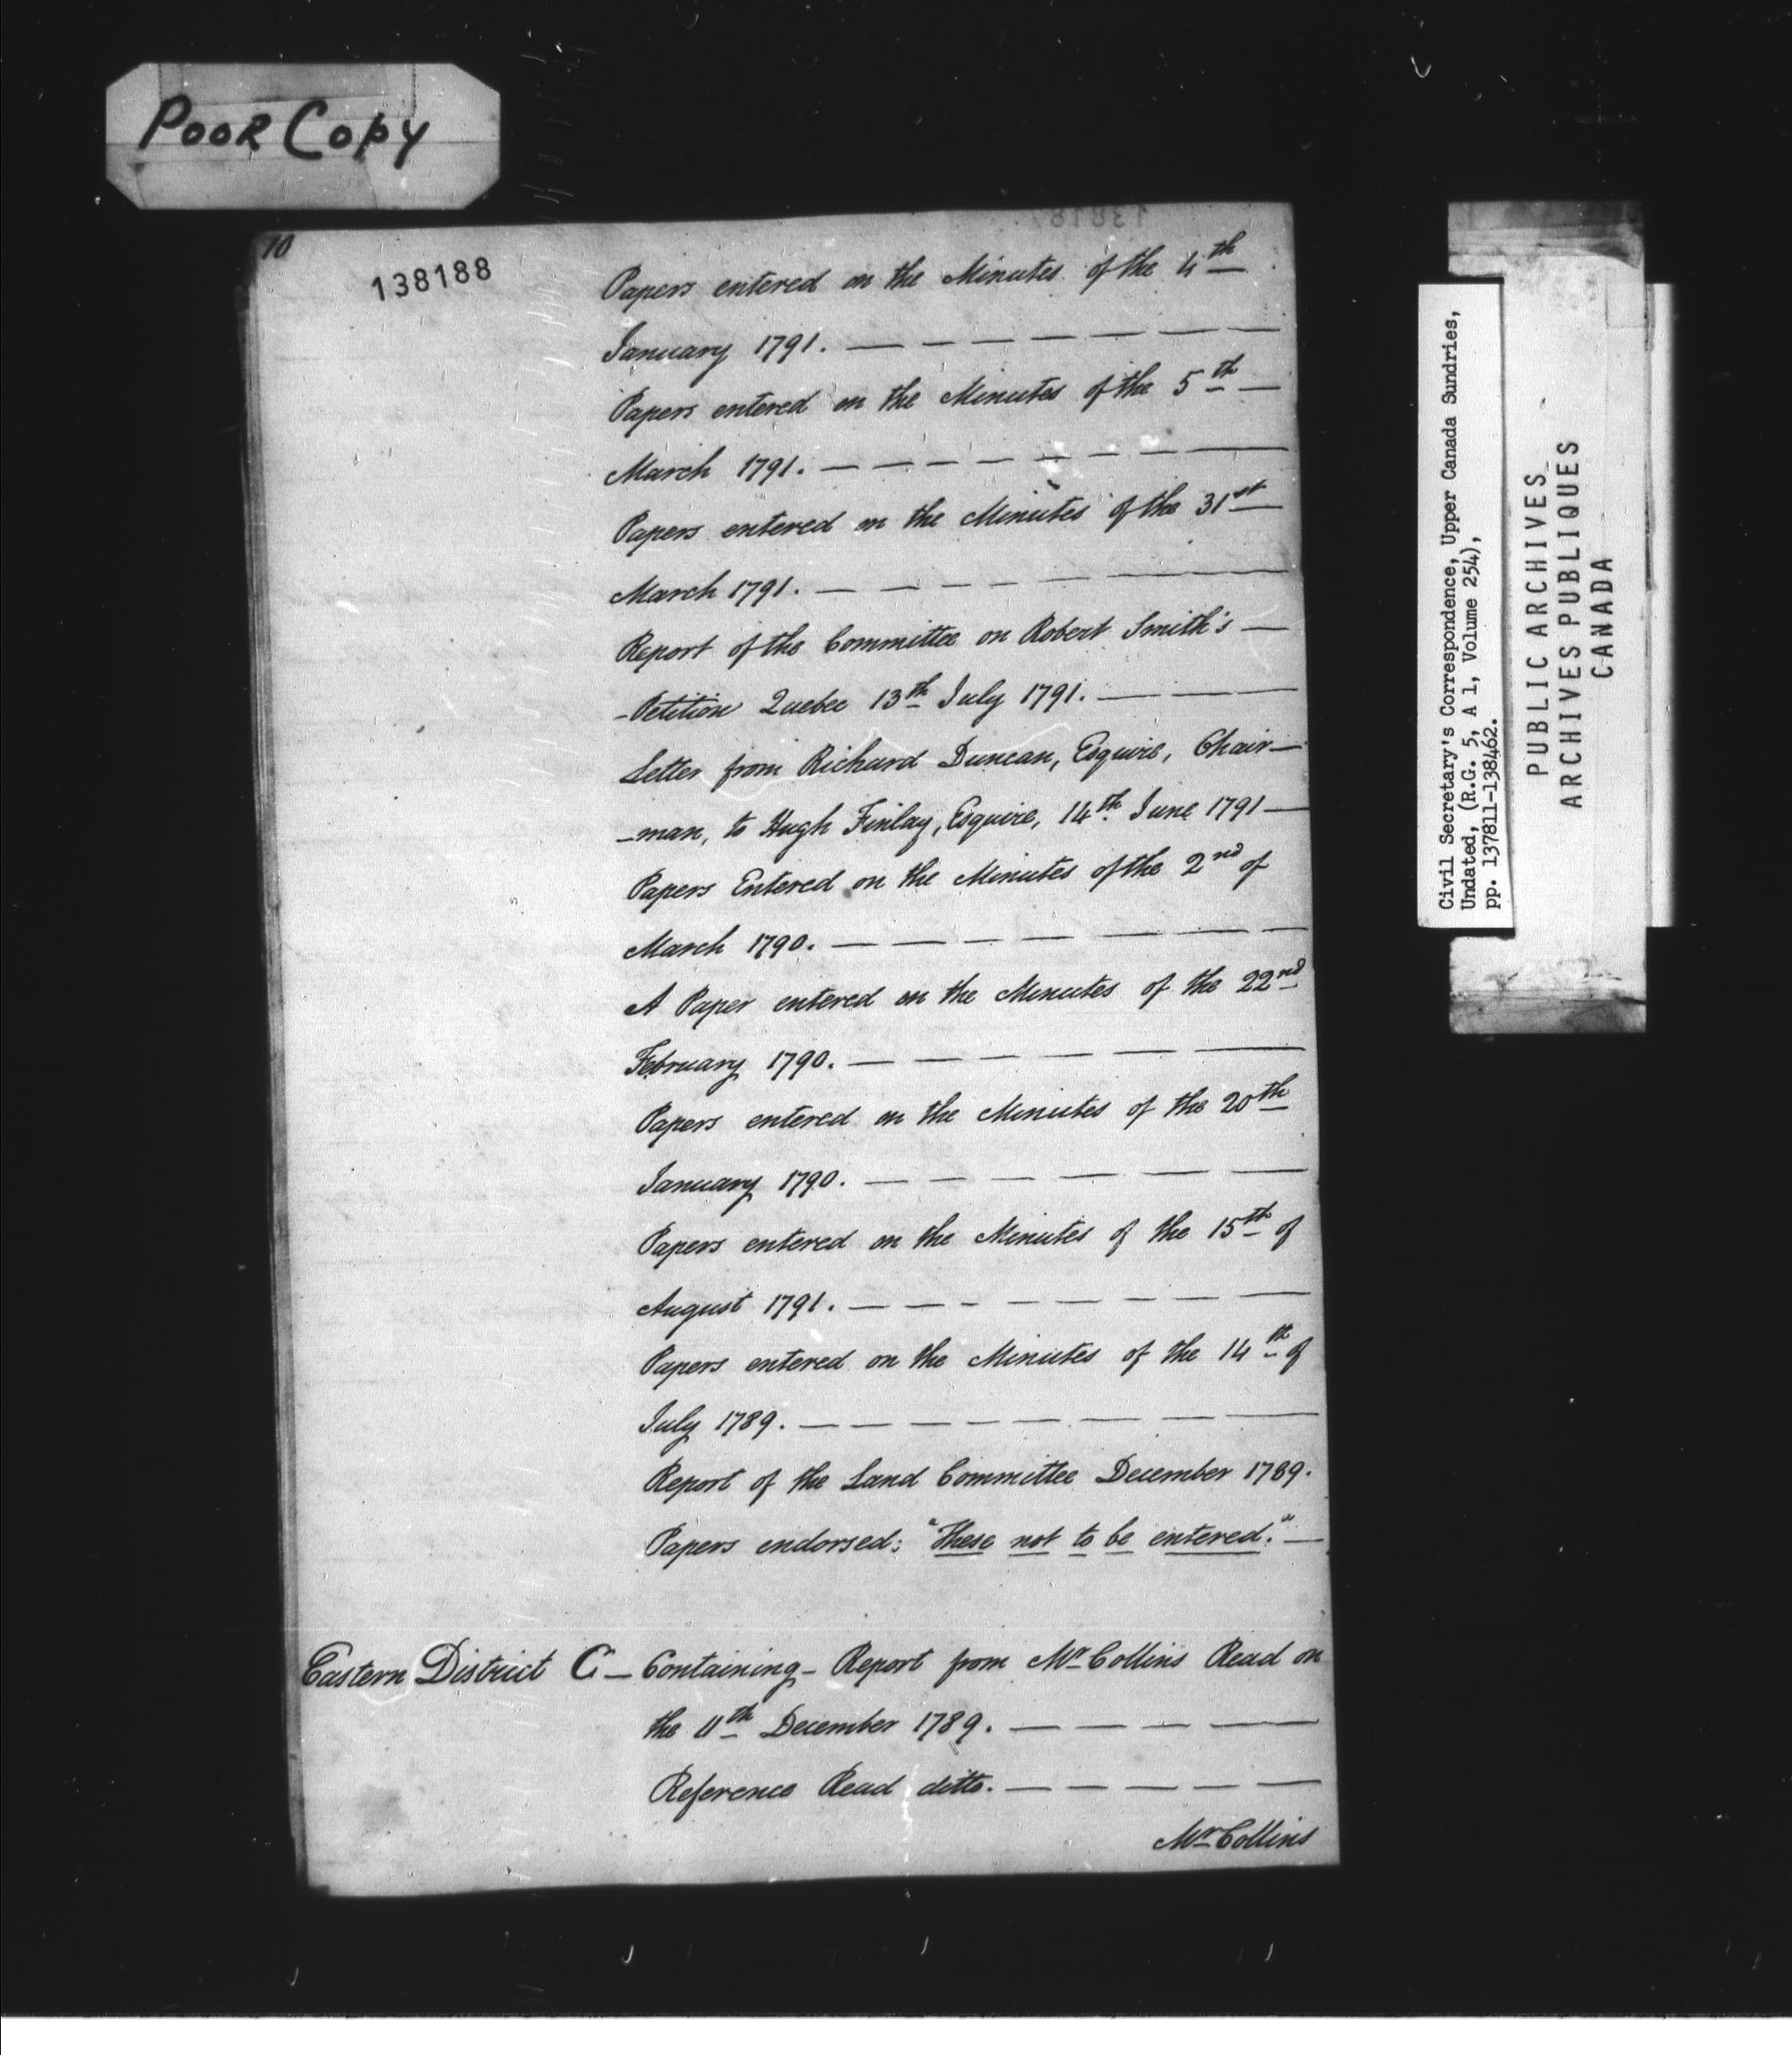 POOR COPY
10
138188
Papers entered on the Minutes of the 4th
January 1791. — — — — — — —
Papers entered on the Minutes of the 5th —
March 1791. — — — — — — —
Papers entered on the Minutes of the 31st
March 1791. — — — — — —
Report of the Committee on Robert Smith's —
-Petition Quebec 13th July 1791. — — —
Letter from Richard Duncan, Esquire, Chair—
-man, to Hugh Finlay, Esquire, 14th June 1791 —
Papers Entered on the Minutes of the 2nd of
March 1790. — — — — — — —
A Paper entered on the Minutes of the 22nd
February 1790. — — — — — —
Papers entered on the Minutes of the 20th
January 1790. — — — — — —
Papers entered on the Minutes of the 15th of
August 1791. — — - — — — —
Papers entered on the Minutes of the 14th of
July 1789. — — — — — — — —
Report of the Land Committee December 1789.
Papers endorsed: "These not to be entered." —
Eastern District C — Containing - Report from Mr Collins Read on
the 11th December 1789. — — — —
Reference Read ditto. — — — — —
Mr Collins
Civil Secretary's Correspondence, Upper Canada Sundries,
Undated, (R.G. 5, A 1, Volume 254),
pp. 137811-138462.
PUBLIC ARCHIVES
ARCHIVES PUBLIQUES
CANADA